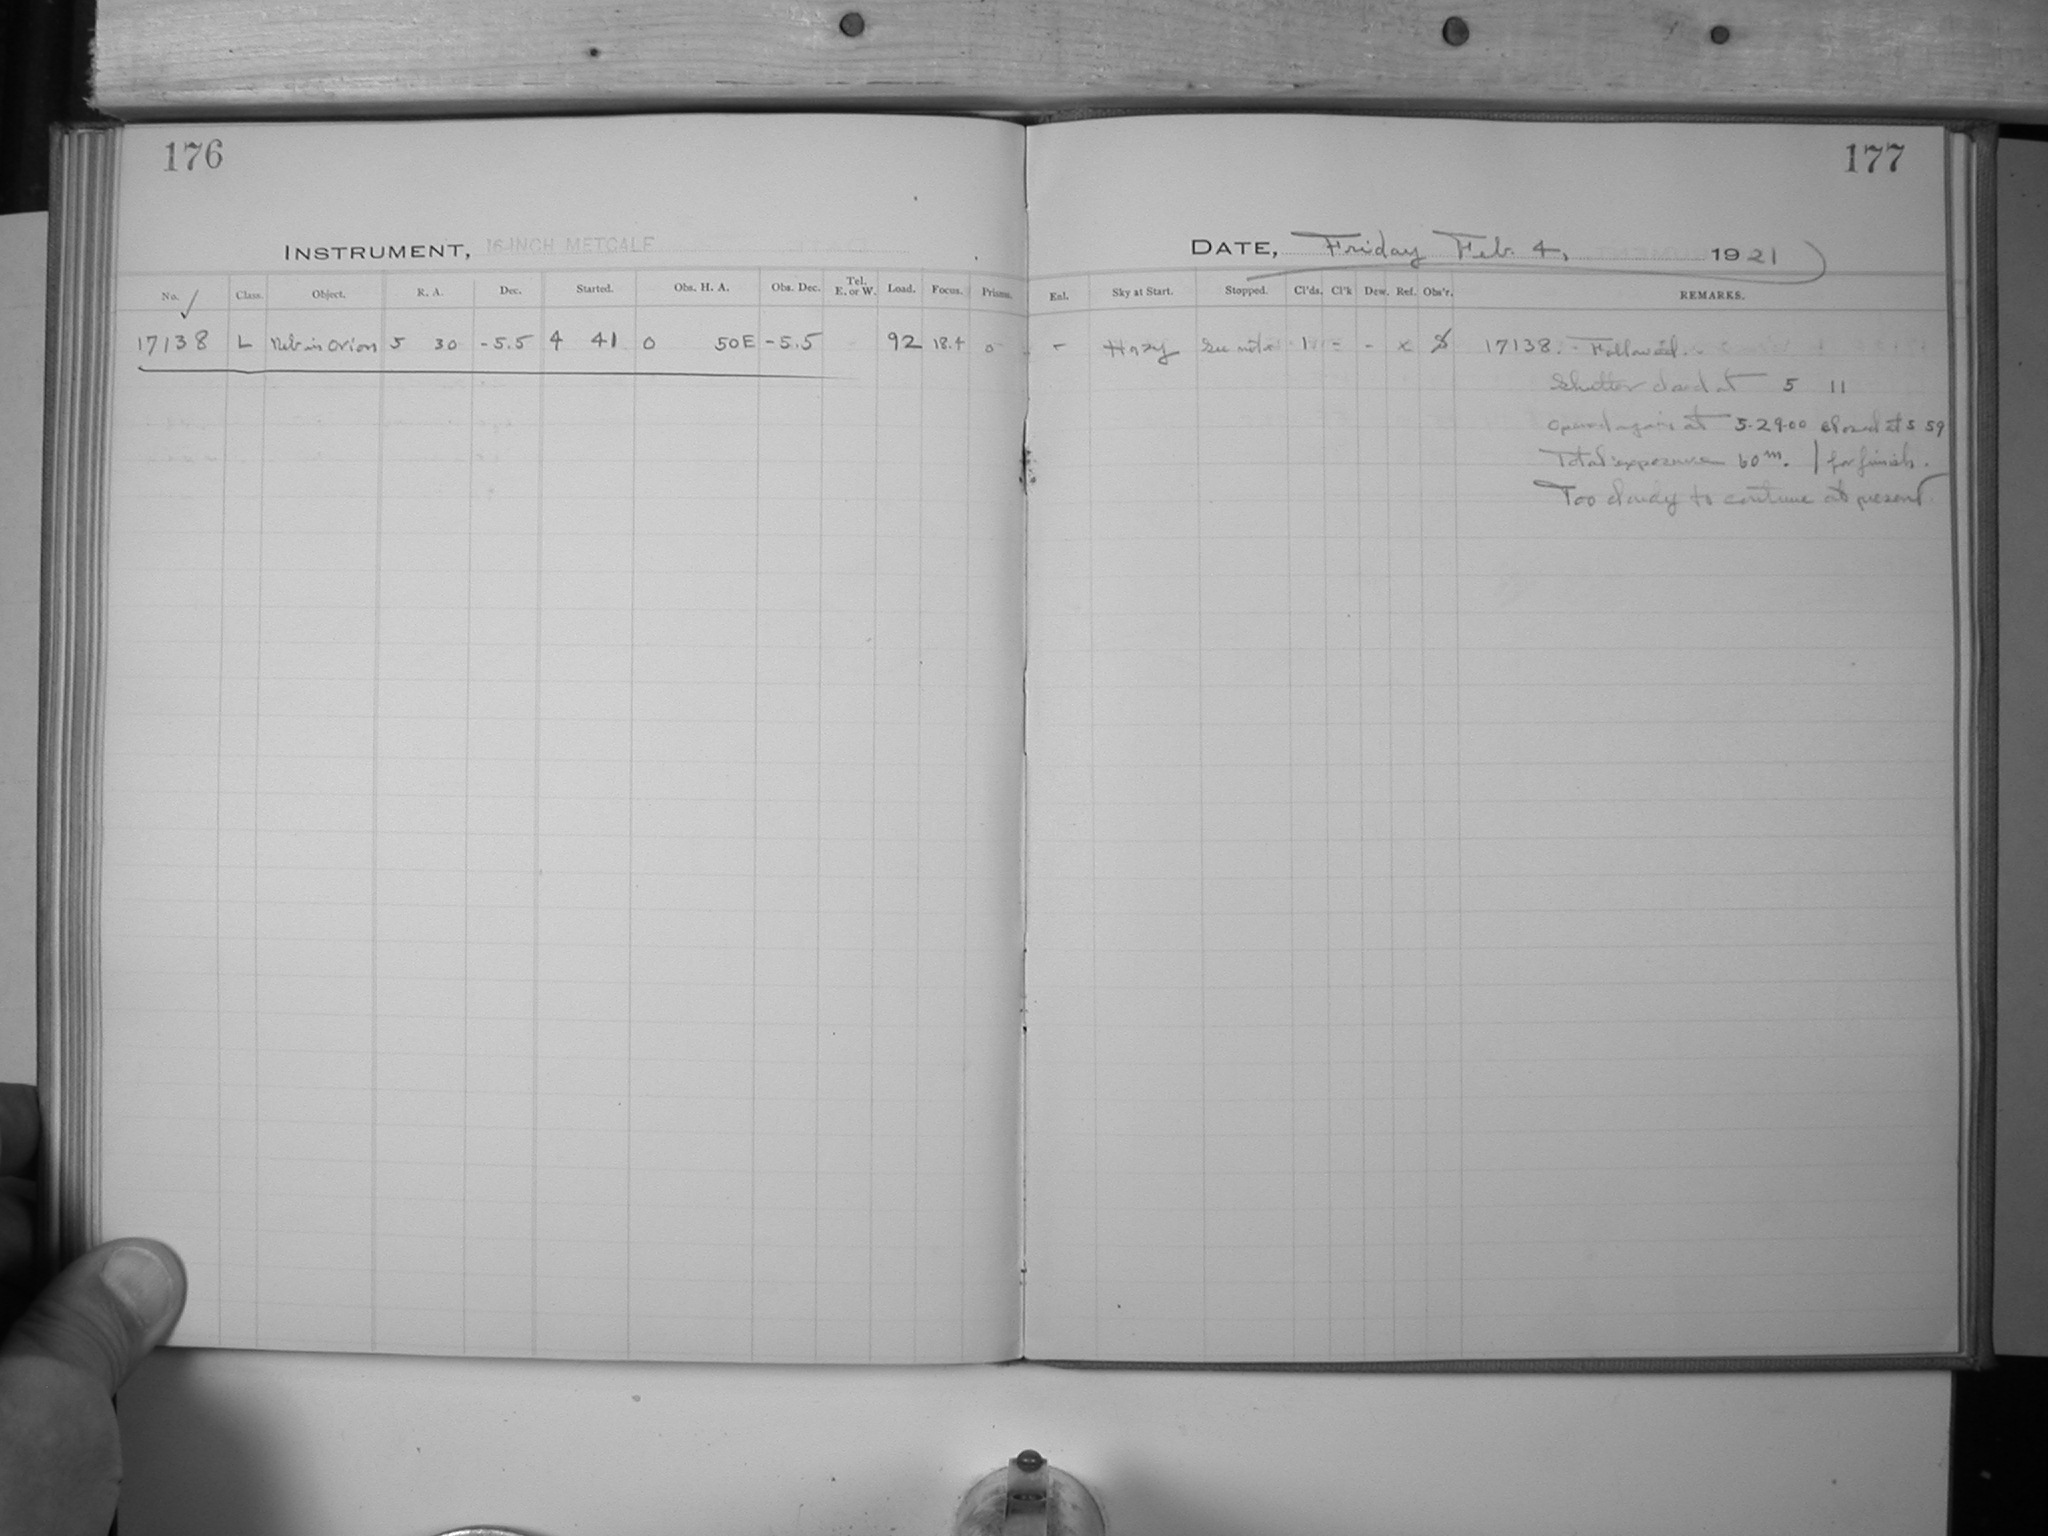 176
177
INSTRUMENT, 16-INCH METCALF
DATE, Friday Feb. 4, 1921
No. Class. Object. R. A. Dec. Started. Obs. H. A. Obs. Dec. Tel. E. or W. Load. Focus. Prisms. Enl. Sky at Start. Stopped. Cl'ds. Cl'k Dew. Ref. Obs'r. REMARKS.
17138 L Neb in Orion 5 30 -5.5 4 41 0 50E -5.5 92 18.4 0 - Hazy See note 1 = - x 17138. - Followed.
Shutter closed at 5 11
Opened again at 5-29-00 closed at 5 59
Total exposure 60m. for finish.
Too cloudy to continue at present